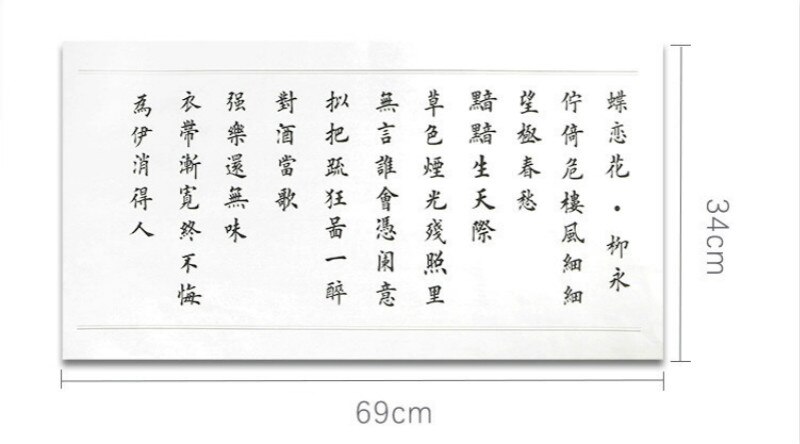 蝶恋花·柳永
佇倚危樓風細細
望極春愁
黯黯生天際
草色煙光殘照里
無言誰會憑阑意
拟把疏狂啚一醉
對酒當歌
强樂還無味
衣帶漸寬終不悔
為伊消得人
34cm
69cm